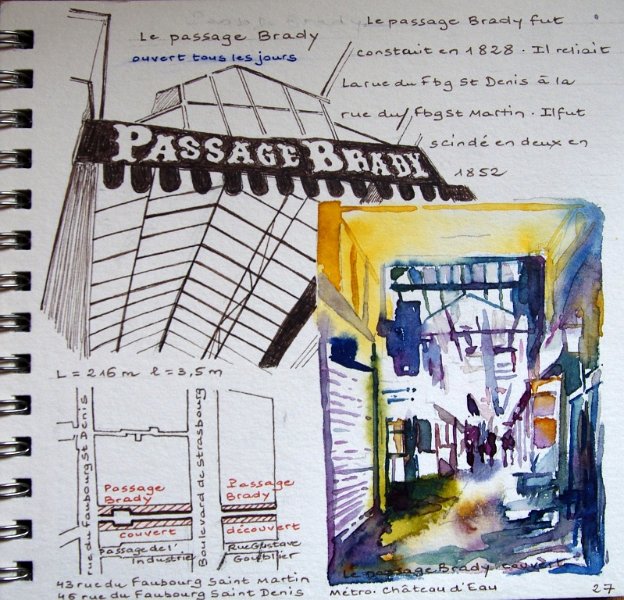 Le passage Brady
ouvert tous les jours
Le passage Brady fut
constuit en 1828. Il reliait
La rue du Fbg St Denis à la
rue du Fbg St Martin. Il fut
scindé en deux en
1852
PASSAGE BRADY
L = 216 m l = 3,5 m
rue du Faubourg St Denis
Boulevard de Strasbourg
Passage
Brady
couvert
Passage
Brady
découvert
passage de l'
Industrie
Rue Gustave
Goublier
43 rue du Faubourg Saint Martin
46 rue du Faubourg Saint Denis
Le passage Brady couvert
Métro. Château d'Eau
27